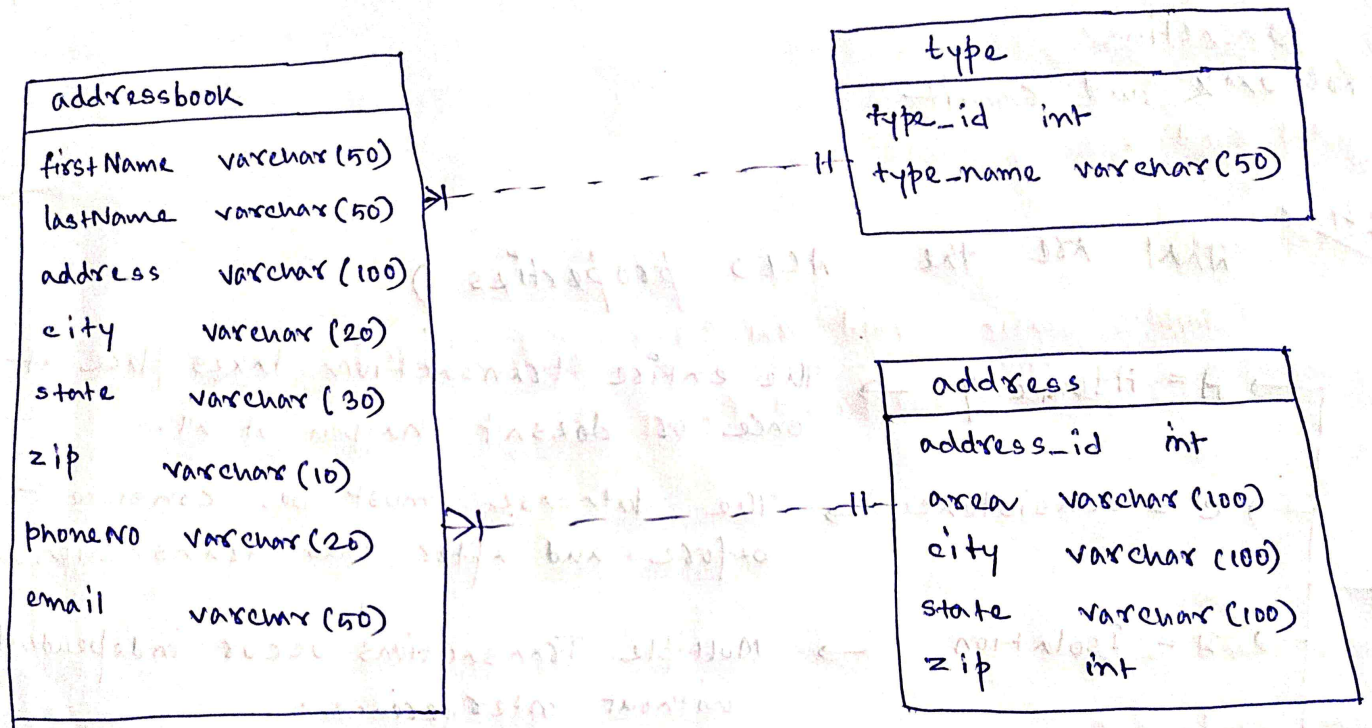 addressbook
firstName varchar(50)
lastName varchar(50)
address varchar(100)
city varchar(20)
state varchar(30)
zip varchar(10)
phoneNO varchar(20)
email varchar(50)
type
type_id int
type_name varchar(50)
address
address_id int
area varchar(100)
city varchar(100)
state varchar(100)
zip int